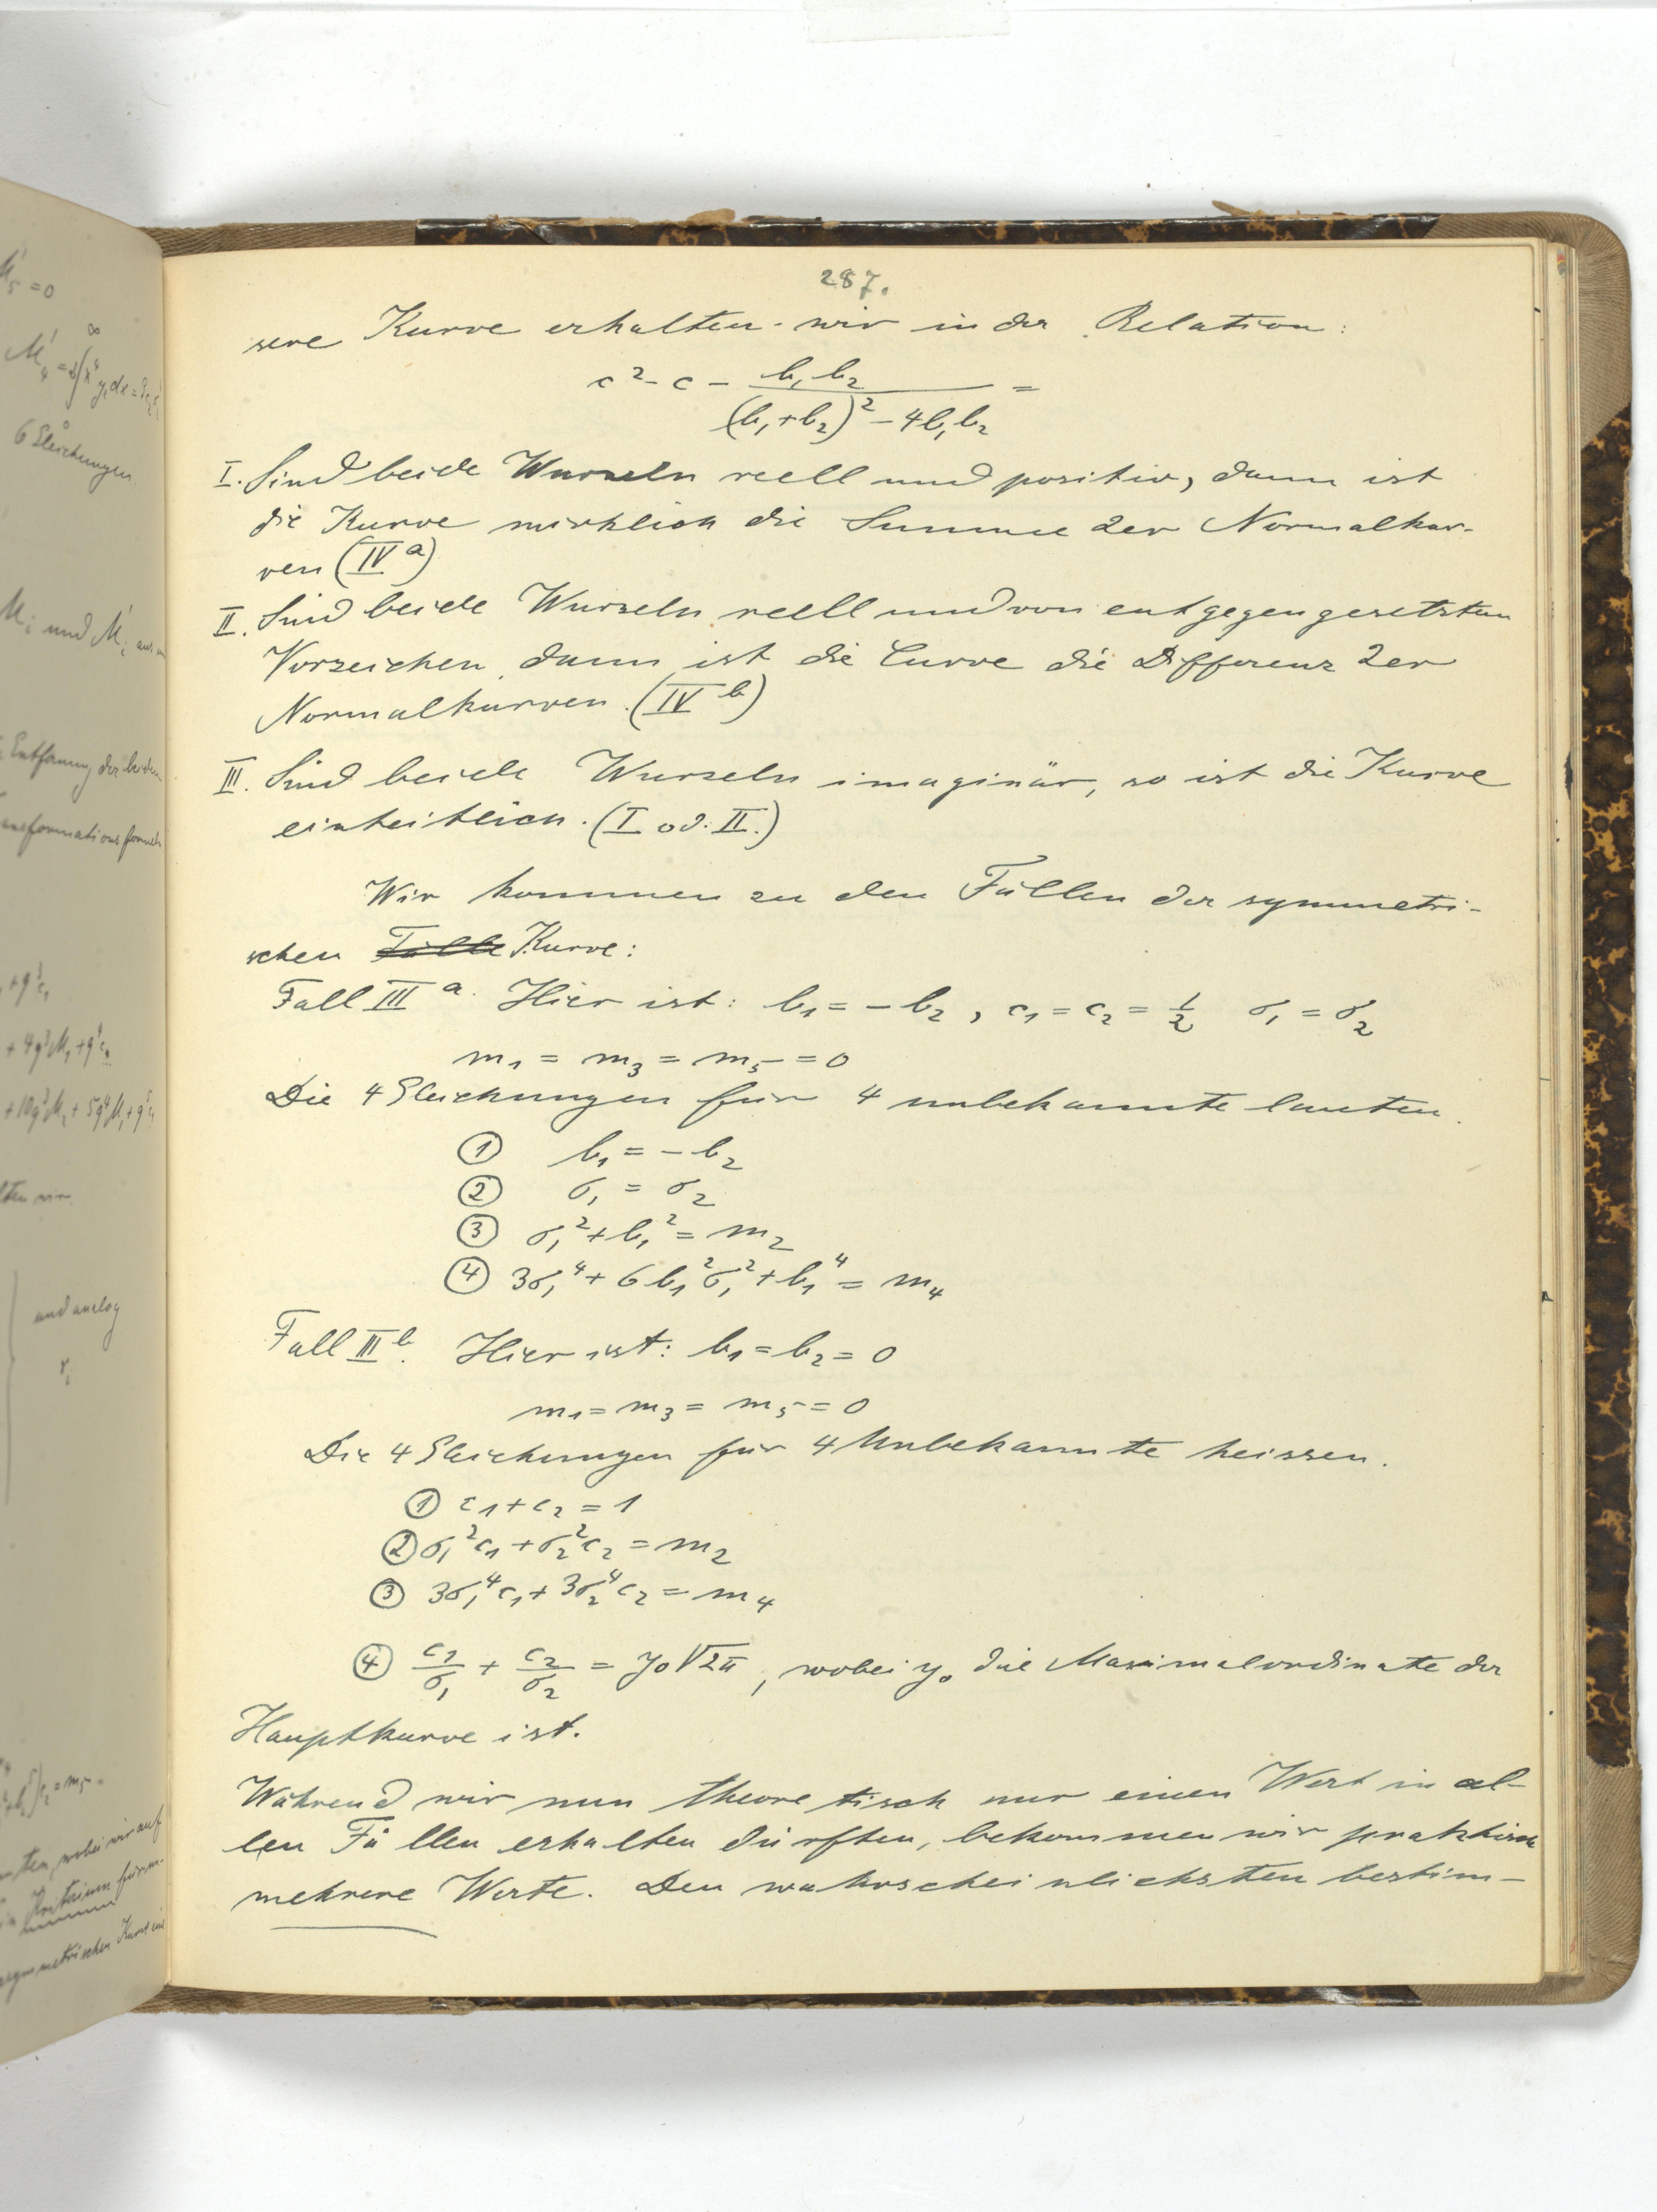 287.
sere Kurve erhalten wir in der Relation:
c² - c - b₁b₂ / ((b₁+b₂)² - 4b₁b₂) =
I. Sind beide Wurzeln reell und positiv, dann ist
die Kurve wirklich die Summe 2er Normalkur-
ven (IV a)
II. Sind beide Wurzeln reell und von entgegengesetzten
Vorzeichen, dann ist die Curve die Differenz 2er
Normalkurven. (IV b)
III. Sind beide Wurzeln imaginär, so ist die Kurve
einheitlich. (I od. II.)
Wir kommen zu den Fällen der symmetri-
schen Fälle Kurve:
Fall III a. Hier ist: b₁ = -b₂, c₁ = c₂ = 1/2 σ₁ = σ₂
m₁ = m₃ = m₅ = 0
Die 4 Gleichungen für 4 unbekannte lauten.
① b₁ = -b₂
② σ₁ = σ₂
③ σ₁² + b₁² = m₂
④ 3σ₁⁴ + 6b₁²σ₁² + b₁⁴ = m₄
Fall III b. Hier ist: b₁ = b₂ = 0
m₁ = m₃ = m₅ = 0
Die 4 Gleichungen für 4 Unbekannte heissen.
① c₁ + c₂ = 1
② σ₁²c₁ + σ₂²c₂ = m₂
③ 3σ₁⁴c₁ + 3σ₂⁴c₂ = m₄
④ c₁/σ₁ + c₂/σ₂ = y₀√2π, wobei y₀ die Maximalordinate der
Hauptkurve ist.
Während wir nun theoretisch nur einen Wert in al-
len Fällen erhalten dürften, bekommen wir praktisch
mehrere Werte. Den wahrscheinlichsten bestim-
M'₅ = 0
6 Gleichungen
Mᵢ und M'ᵢ aus
Entfernung der beiden
ansformationsformeln
+ 4q³M₁ + q⁴c₁
+ 10q³M₂ + 5q⁴M₁ + q⁵c₁
lten wir
und analog
wobei wir auf
Kriterium für
symmetrischen Kurve